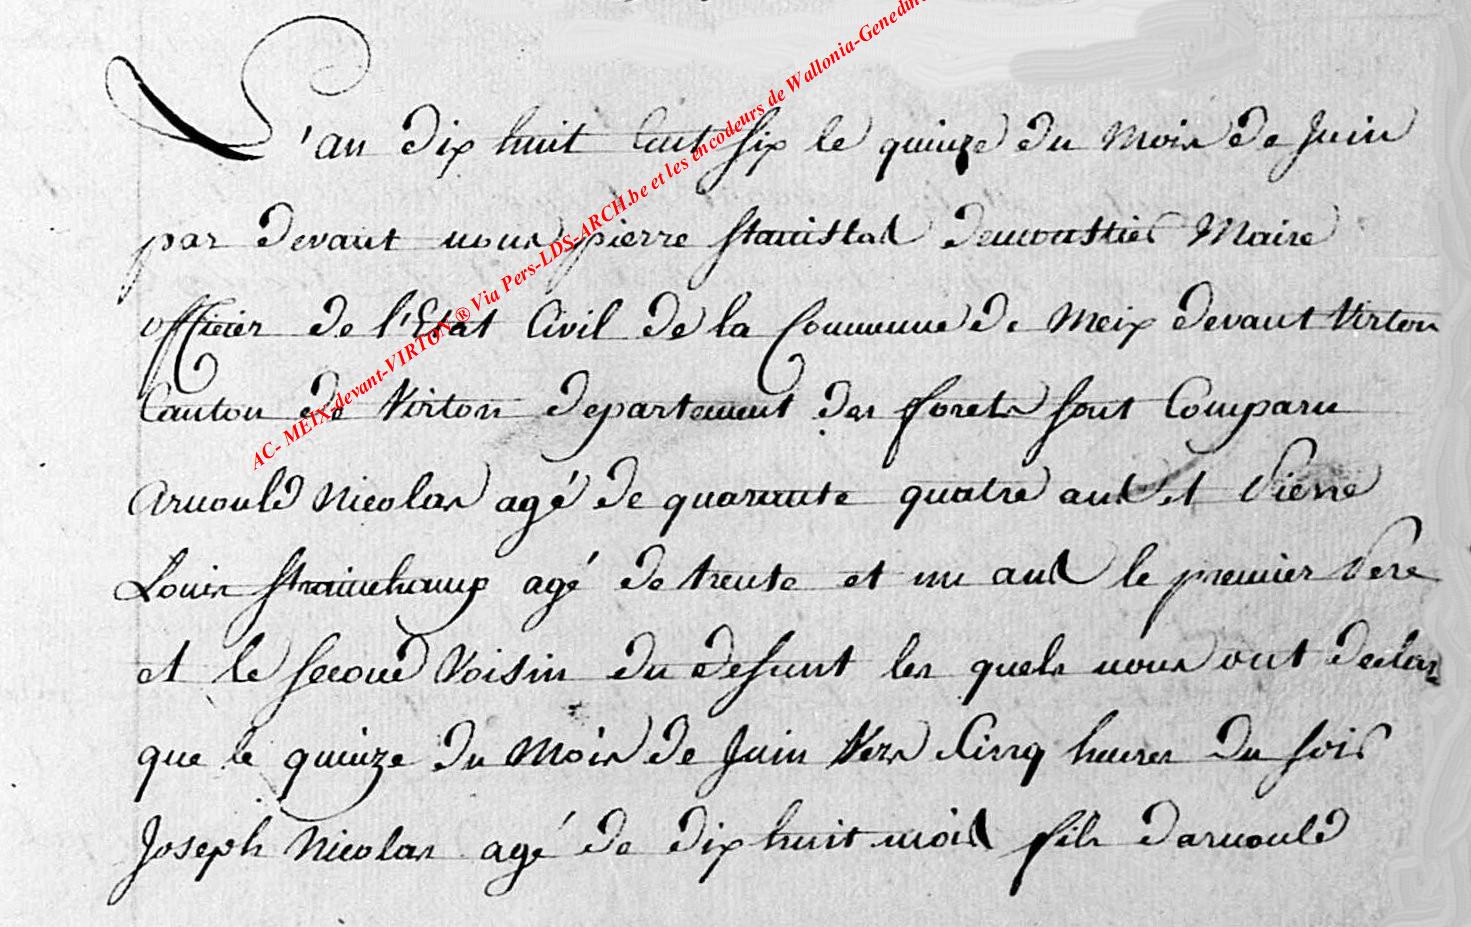 L'an dix huit Cent Six le quinze du Mois de Juin
par devant nous pierre Stanislas demoustier Maire
officier de l'Etat Civil de la Commune de Meix devant Virton
Canton de Virton departement des forets Sont Comparu
Arnould Nicolas agé de quarante quatre ans et Pierre
Louis Strainchamp agé de trente et un ans le premier Pere
et le Second Voisin du defunt les quels nous ont declar
que le quinze du Mois de Juin Vers Cinq heures du Soir
Joseph Nicolas agé de dix huit mois fils darnould
AC- MEIX-devant-VIRTON® Via Pers-LDS-ARCH.be et les encodeurs de Wallonia-Genedin